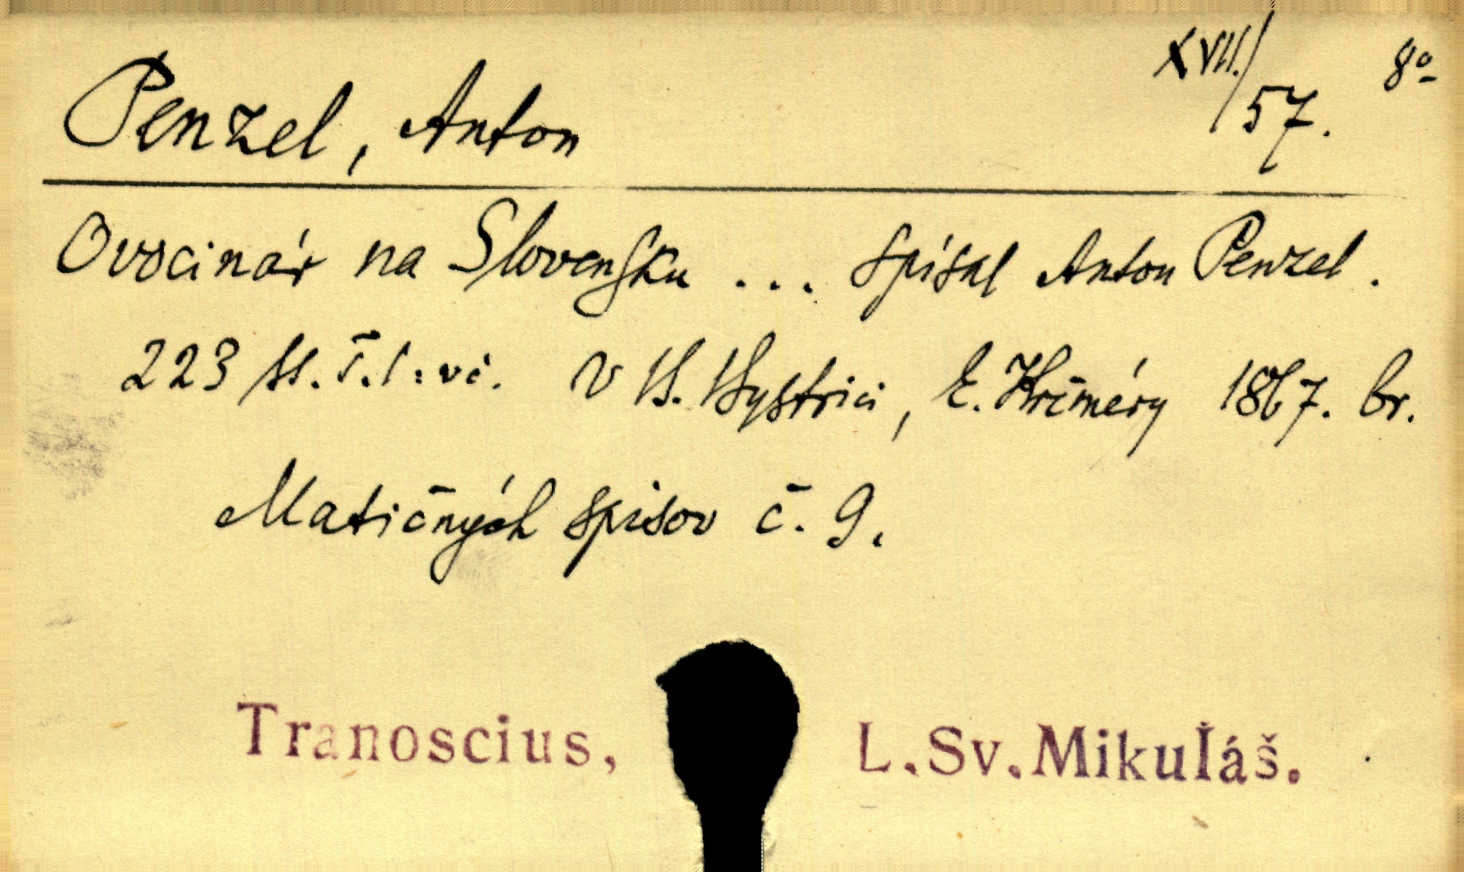 XVII./57. 8º
Penzel, Anton
Ovocinár na Slovensku ... spísal Anton Penzel.
223 V B. Bystrici, E. Krčméry 1867. br.
Matičných spisov č. 9.
Tranoscius, L.Sv.Mikuláš.